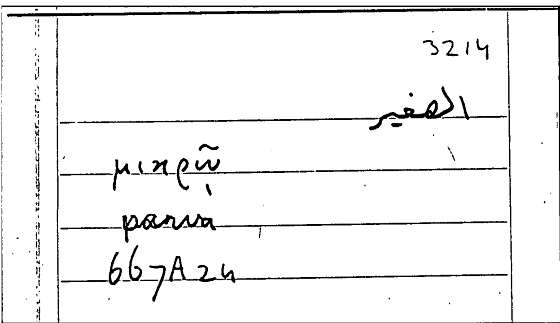 3214
الصغير
μικρῷ
parva
667A24